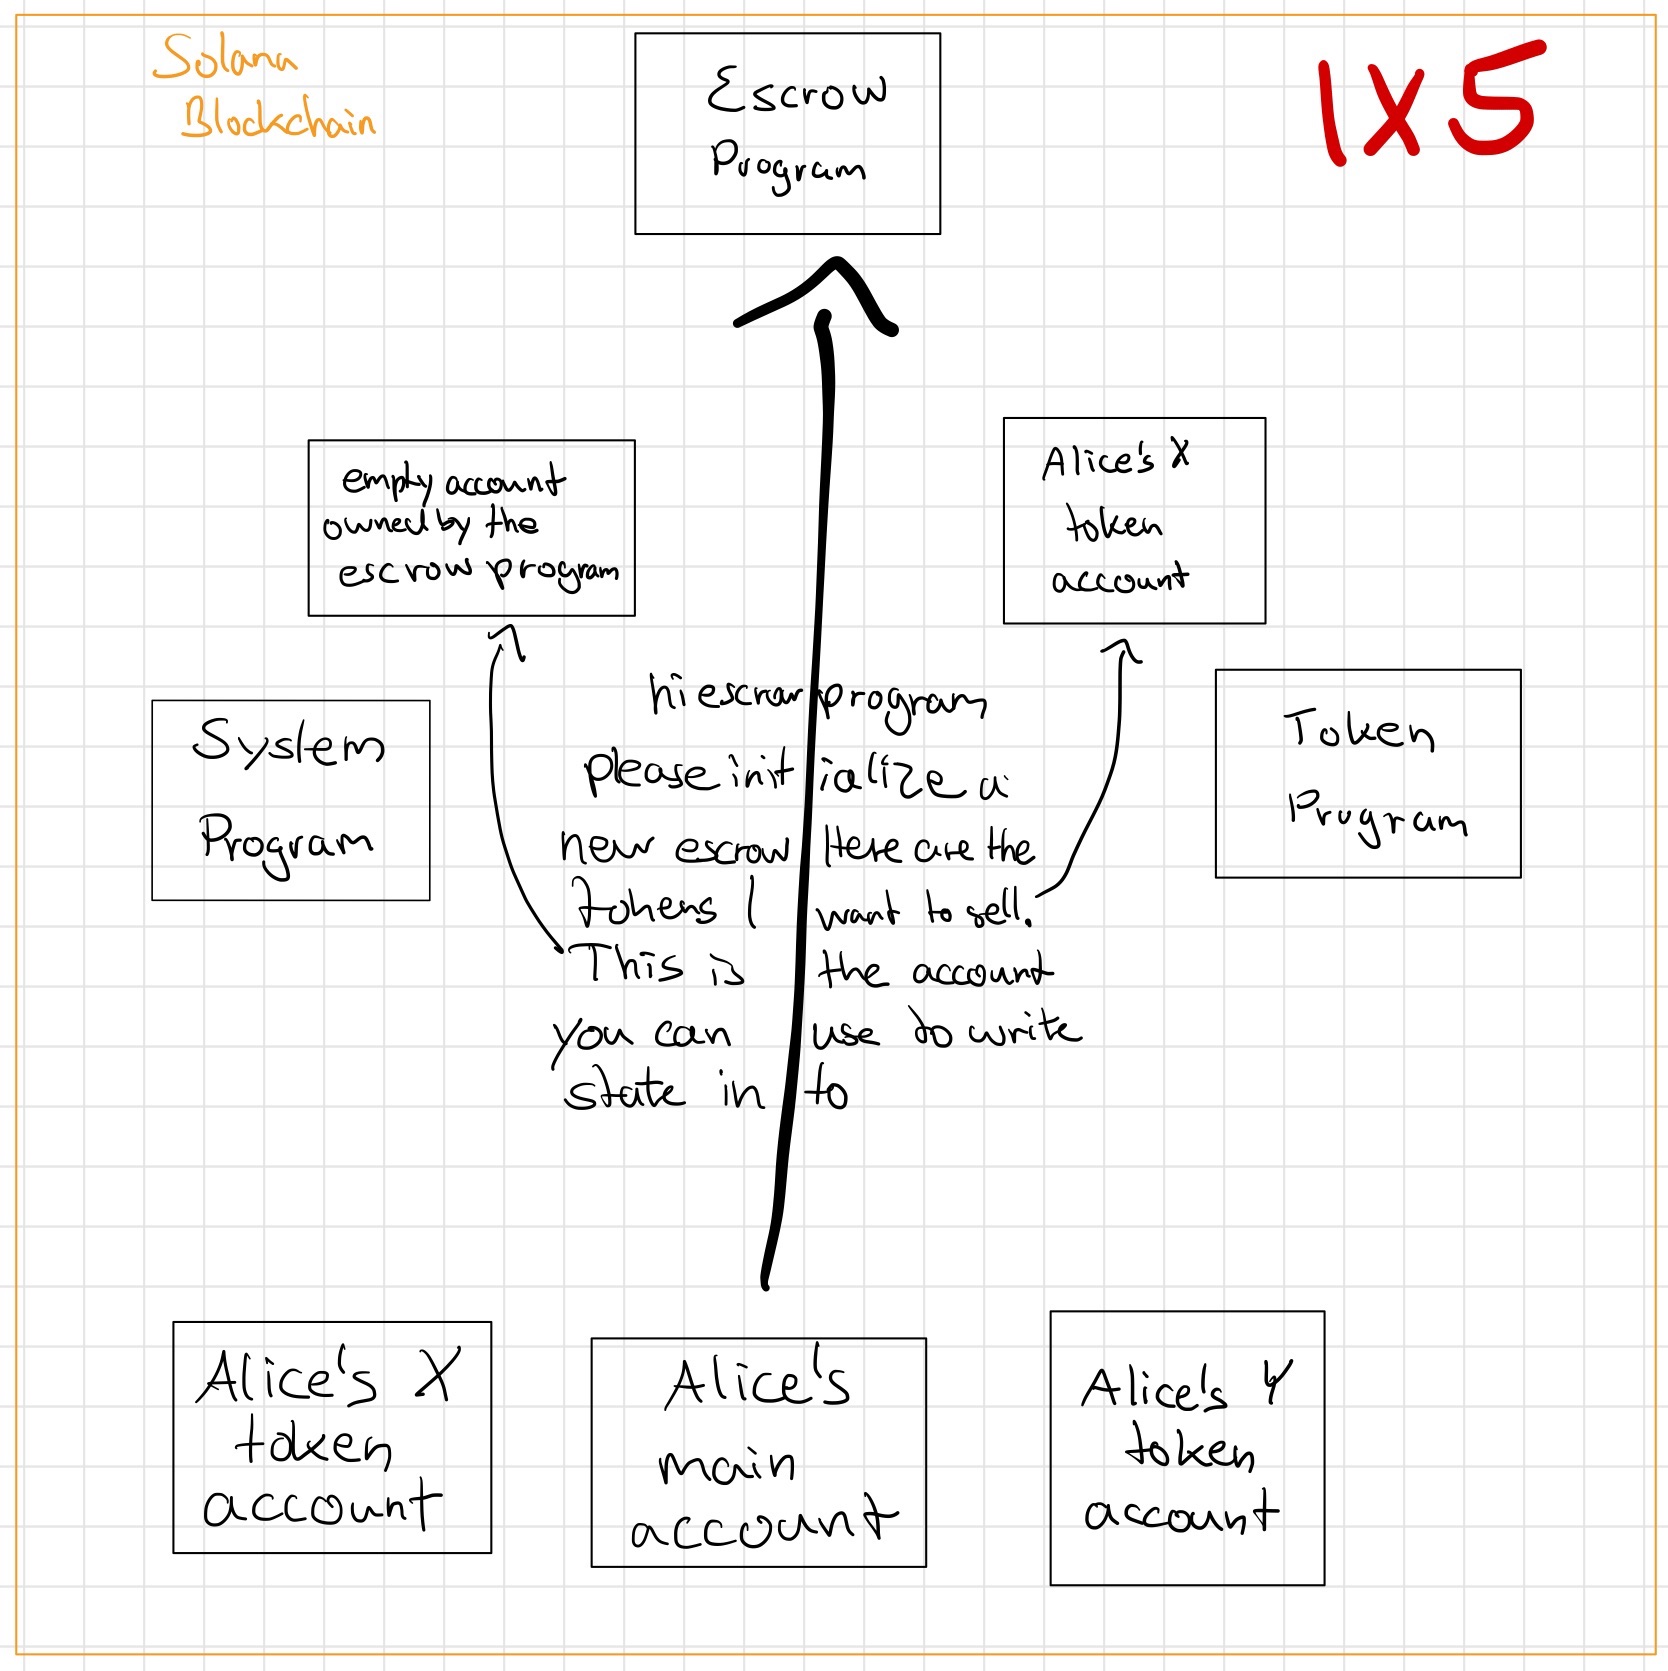 Solana
Blockchain
Escrow
Program
1x5
empty account
owned by the
escrow program
Alice's X
token
account
System
Program
hi escrow program
please initialize a
new escrow Here are the
tokens I want to sell.
This is the account
you can use to write
state in to
Token
Program
Alice's X
token
account
Alice's
main
account
Alice's Y
token
account